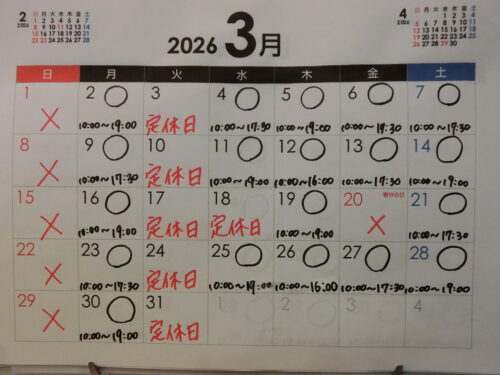 2
2026
日 月 火 水 木 金 土
1 2 3 4 5 6 7
8 9 10 11 12 13 14
15 16 17 18 19 20 21
22 23 24 25 26 27 28
2026 3月
4
2026
日 月 火 水 木 金 土
1 2 3 4
5 6 7 8 9 10 11
12 13 14 15 16 17 18
19 20 21 22 23 24 25
26 27 28 29 30
日 月 火 水 木 金 土
1 2 3 4 5 6 7
× 10:00～19:00 定休日 10:00～17:30 10:00～19:00 10:00～17:30 10:00～19:30
8 9 10 11 12 13 14
× 10:00～17:30 定休日 10:00～19:00 10:00～16:00 10:00～17:30 10:00～19:00
15 16 17 18 19 20 春分の日 21
× 10:00～19:00 定休日 定休日 10:00～19:00 × 10:00～17:30
22 23 24 25 26 27 28
× 10:00～17:30 定休日 10:00～19:00 10:00～16:00 10:00～17:30 10:00～19:00
29 30 31
× 10:00～19:00 定休日